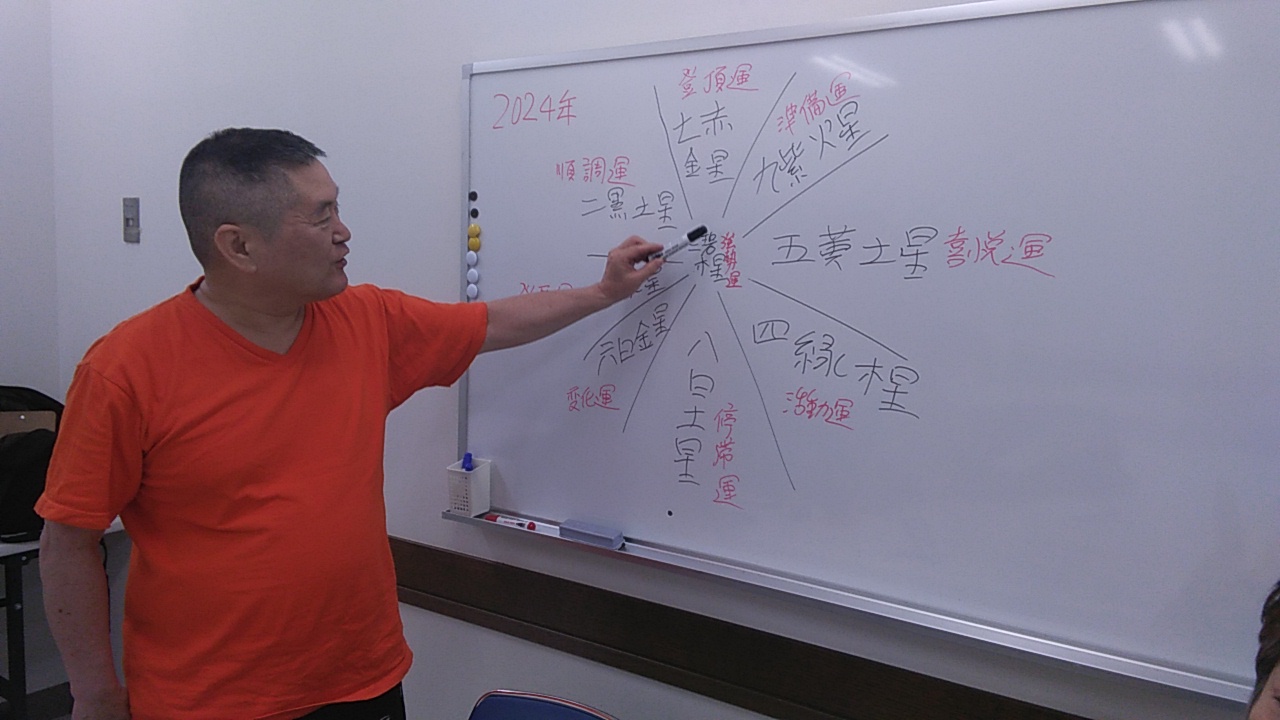 2024年
登頂運
七赤
金星
準備運
九紫火星
順調運
二黒土星
三碧
木星
強勢運
五黄土星 喜悦運
六白金星
変化運
八白土星
停滞運
四緑木星
活動運